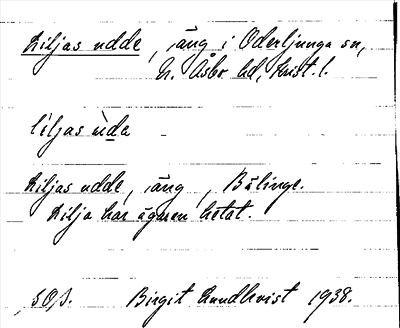 Liljas udde, äng i Oderljunga sn,
N. Åsbo hd, Krist. l.
lìljas ùda
Liljas udde, äng, Bälinge.
Lilja har ägaren hetat.
SOÅ. Birgit Lundkvist 1938.